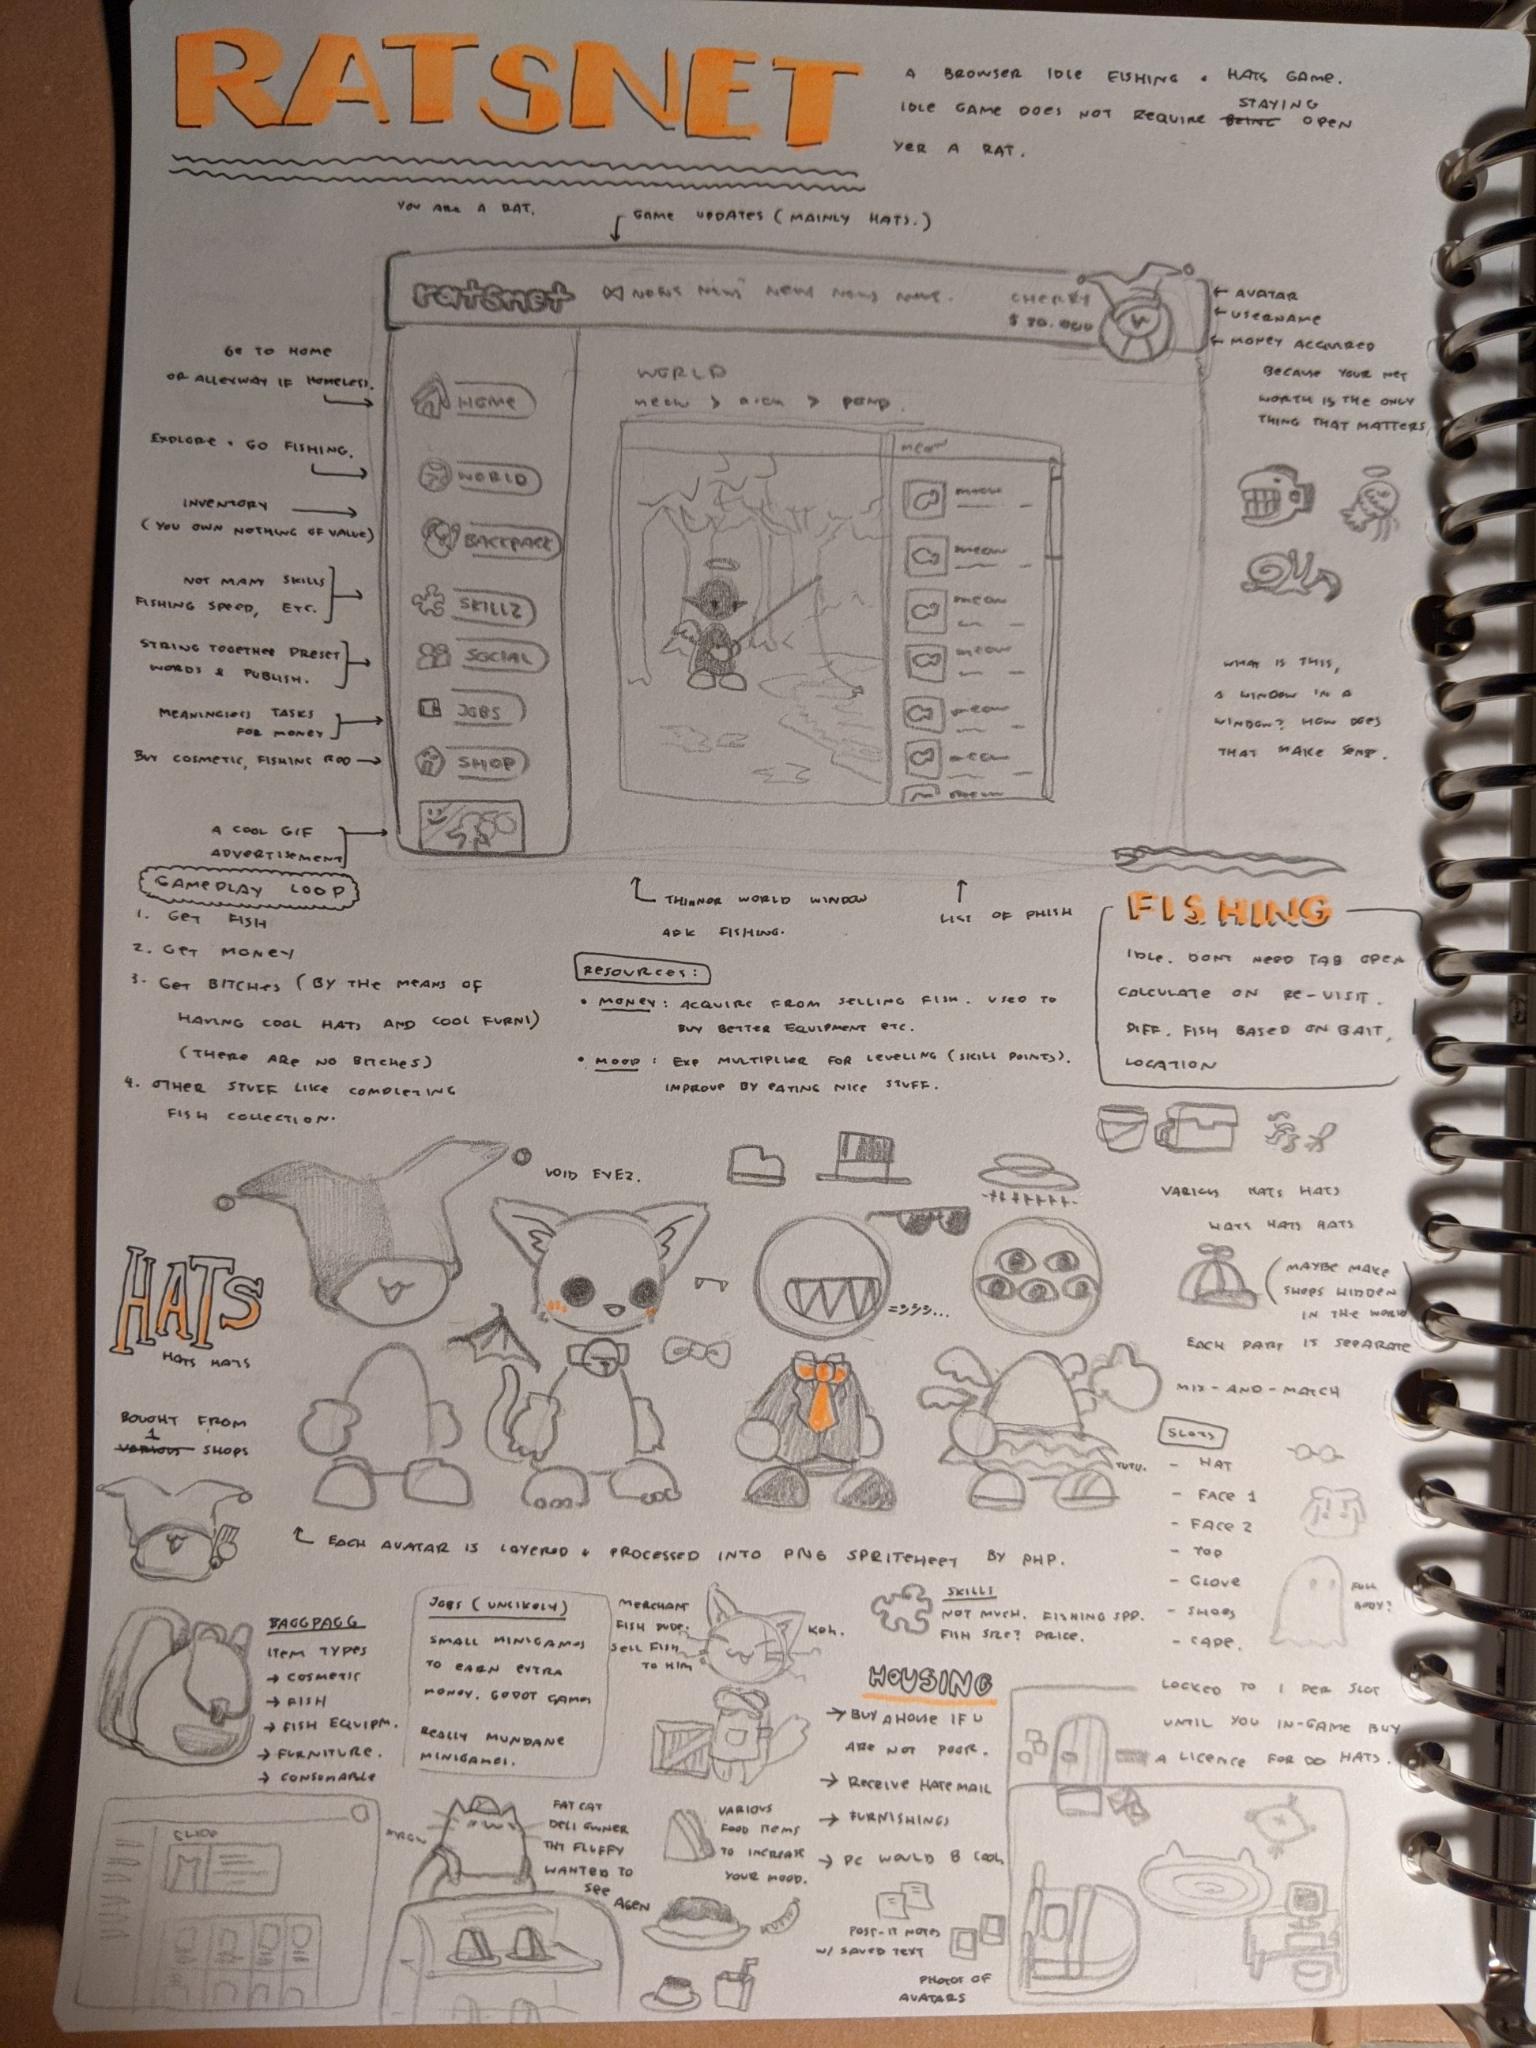 RATSNET
A BROWSER IDLE FISHING + HATS GAME.
IDLE GAME DOES NOT REQUIRE BEING STAYING OPEN
YER A RAT.
YOU ARE A RAT.
GAME UPDATES (MAINLY HATS.)
ratsnet
NEWS NEWS NEWS NEWS NEWS.
CHERRY
$ 70.000
← AVATAR
← USERNAME
← MONEY ACQUIRED
BECAUSE YOUR NET
WORTH IS THE ONLY
THING THAT MATTERS
GO TO HOME
OR ALLEYWAY IF HOMELESS.
EXPLORE + GO FISHING.
INVENTORY
(YOU OWN NOTHING OF VALUE)
NOT MANY SKILLS
FISHING SPEED, ETC.
STRING TOGETHER PRESET
WORDS & PUBLISH.
MEANINGLESS TASKS
FOR MONEY
BUY COSMETIC, FISHING ROD
A COOL GIF
ADVERTISEMENT
HOME
WORLD
BACKPACK
SKILLZ
SOCIAL
JOBS
SHOP
WORLD
meow >
MEOW
meow
meow
meow
meow
meow
meow
WHAT IS THIS,
A WINDOW IN A
WINDOW? HOW DOES
THAT MAKE SENSE.
THINNER WORLD WINDOW
AFK FISHING.
LIST OF PHISH
GAMEPLAY LOOP
1. GET FISH
2. GET MONEY
3. GET BITCHES (BY THE MEANS OF
HAVING COOL HATS AND COOL FURNI)
(THERE ARE NO BITCHES)
4. OTHER STUFF LIKE COMPLETING
FISH COLLECTION.
RESOURCES:
• MONEY: ACQUIRE FROM SELLING FISH. USED TO
BUY BETTER EQUIPMENT ETC.
• MOOD: EXP MULTIPLIER FOR LEVELING (SKILL POINTS).
IMPROVE BY EATING NICE STUFF.
FISHING
IDLE. DONT NEED TAB OPEN
CALCULATE ON RE-VISIT.
DIFF. FISH BASED ON BAIT,
LOCATION
VOID EYEZ.
VARIOUS HATS HATS
HATS HATS HATS
(MAYBE MAKE
SHOPS HIDDEN
IN THE WORLD)
EACH PART IS SEPARATE
MIX-AND-MATCH
HATS
HATS HATS
BOUGHT FROM
VARIOUS 1 SHOPS
TUTU.
SLOTS
- HAT
- FACE 1
- FACE 2
- TOP
- GLOVE
- SHOES
- CAPE.
FULL
BODY?
LOCKED TO 1 PER SLOT
UNTIL YOU IN-GAME BUY
A LICENCE FOR DO HATS.
EACH AVATAR IS LAYERED + PROCESSED INTO PNG SPRITESHEET BY PHP.
BAGGPAGG
ITEM TYPES
→ COSMETIC
→ FISH
→ FISH EQUIPM.
→ FURNITURE.
→ CONSUMABLE
JOBS (UNLIKELY)
SMALL MINIGAMES
TO EARN EXTRA
MONEY. GODOT GAMES
REALLY MUNDANE
MINIGAMES.
MERCHANT
FISH DUDE.
SELL FISH
TO HIM
KOH.
SKILLS
NOT MUCH. FISHING SPD.
FISH SIZE? PRICE.
HOUSING
→ BUY A HOUSE IF U
ARE NOT POOR.
→ RECEIVE HATEMAIL
→ FURNISHINGS
→ PC WOULD B COOL
POST-IT NOTES
W/ SAVED TEXT
PHOTOS OF
AVATARS
SHOP
FAT CAT
DELI OWNER
THY FLUFFY
WANTED TO
SEE
AGEN
VARIOUS
FOOD ITEMS
TO INCREASE
YOUR MOOD.